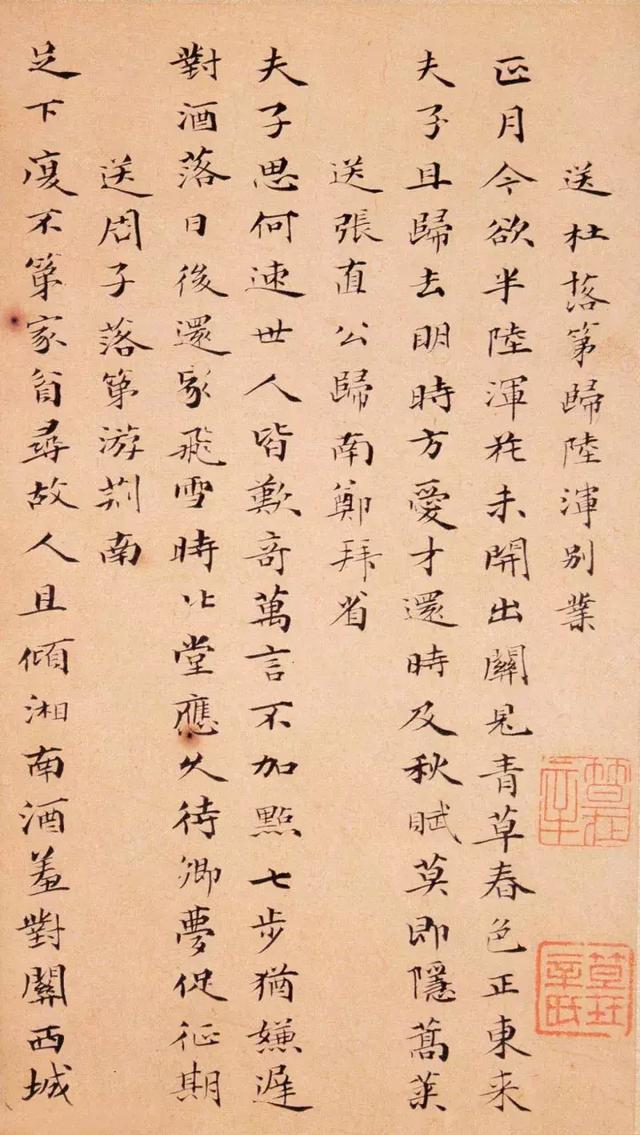 送杜落第歸陸渾別業
正月今欲半陸渾花未開出關見青草春色正東来
夫子且歸去明時方愛才還時及秋賦莫即隱蒿萊
送張直公歸南鄭拜省
夫子思何速世人皆歎奇萬言不加點七步猶嫌遲
對酒落日後還家飛雪時北堂應久待鄉夢促征期
送周子落第游荊南
足下復不第家貧尋故人且傾湘南酒羞對關西城